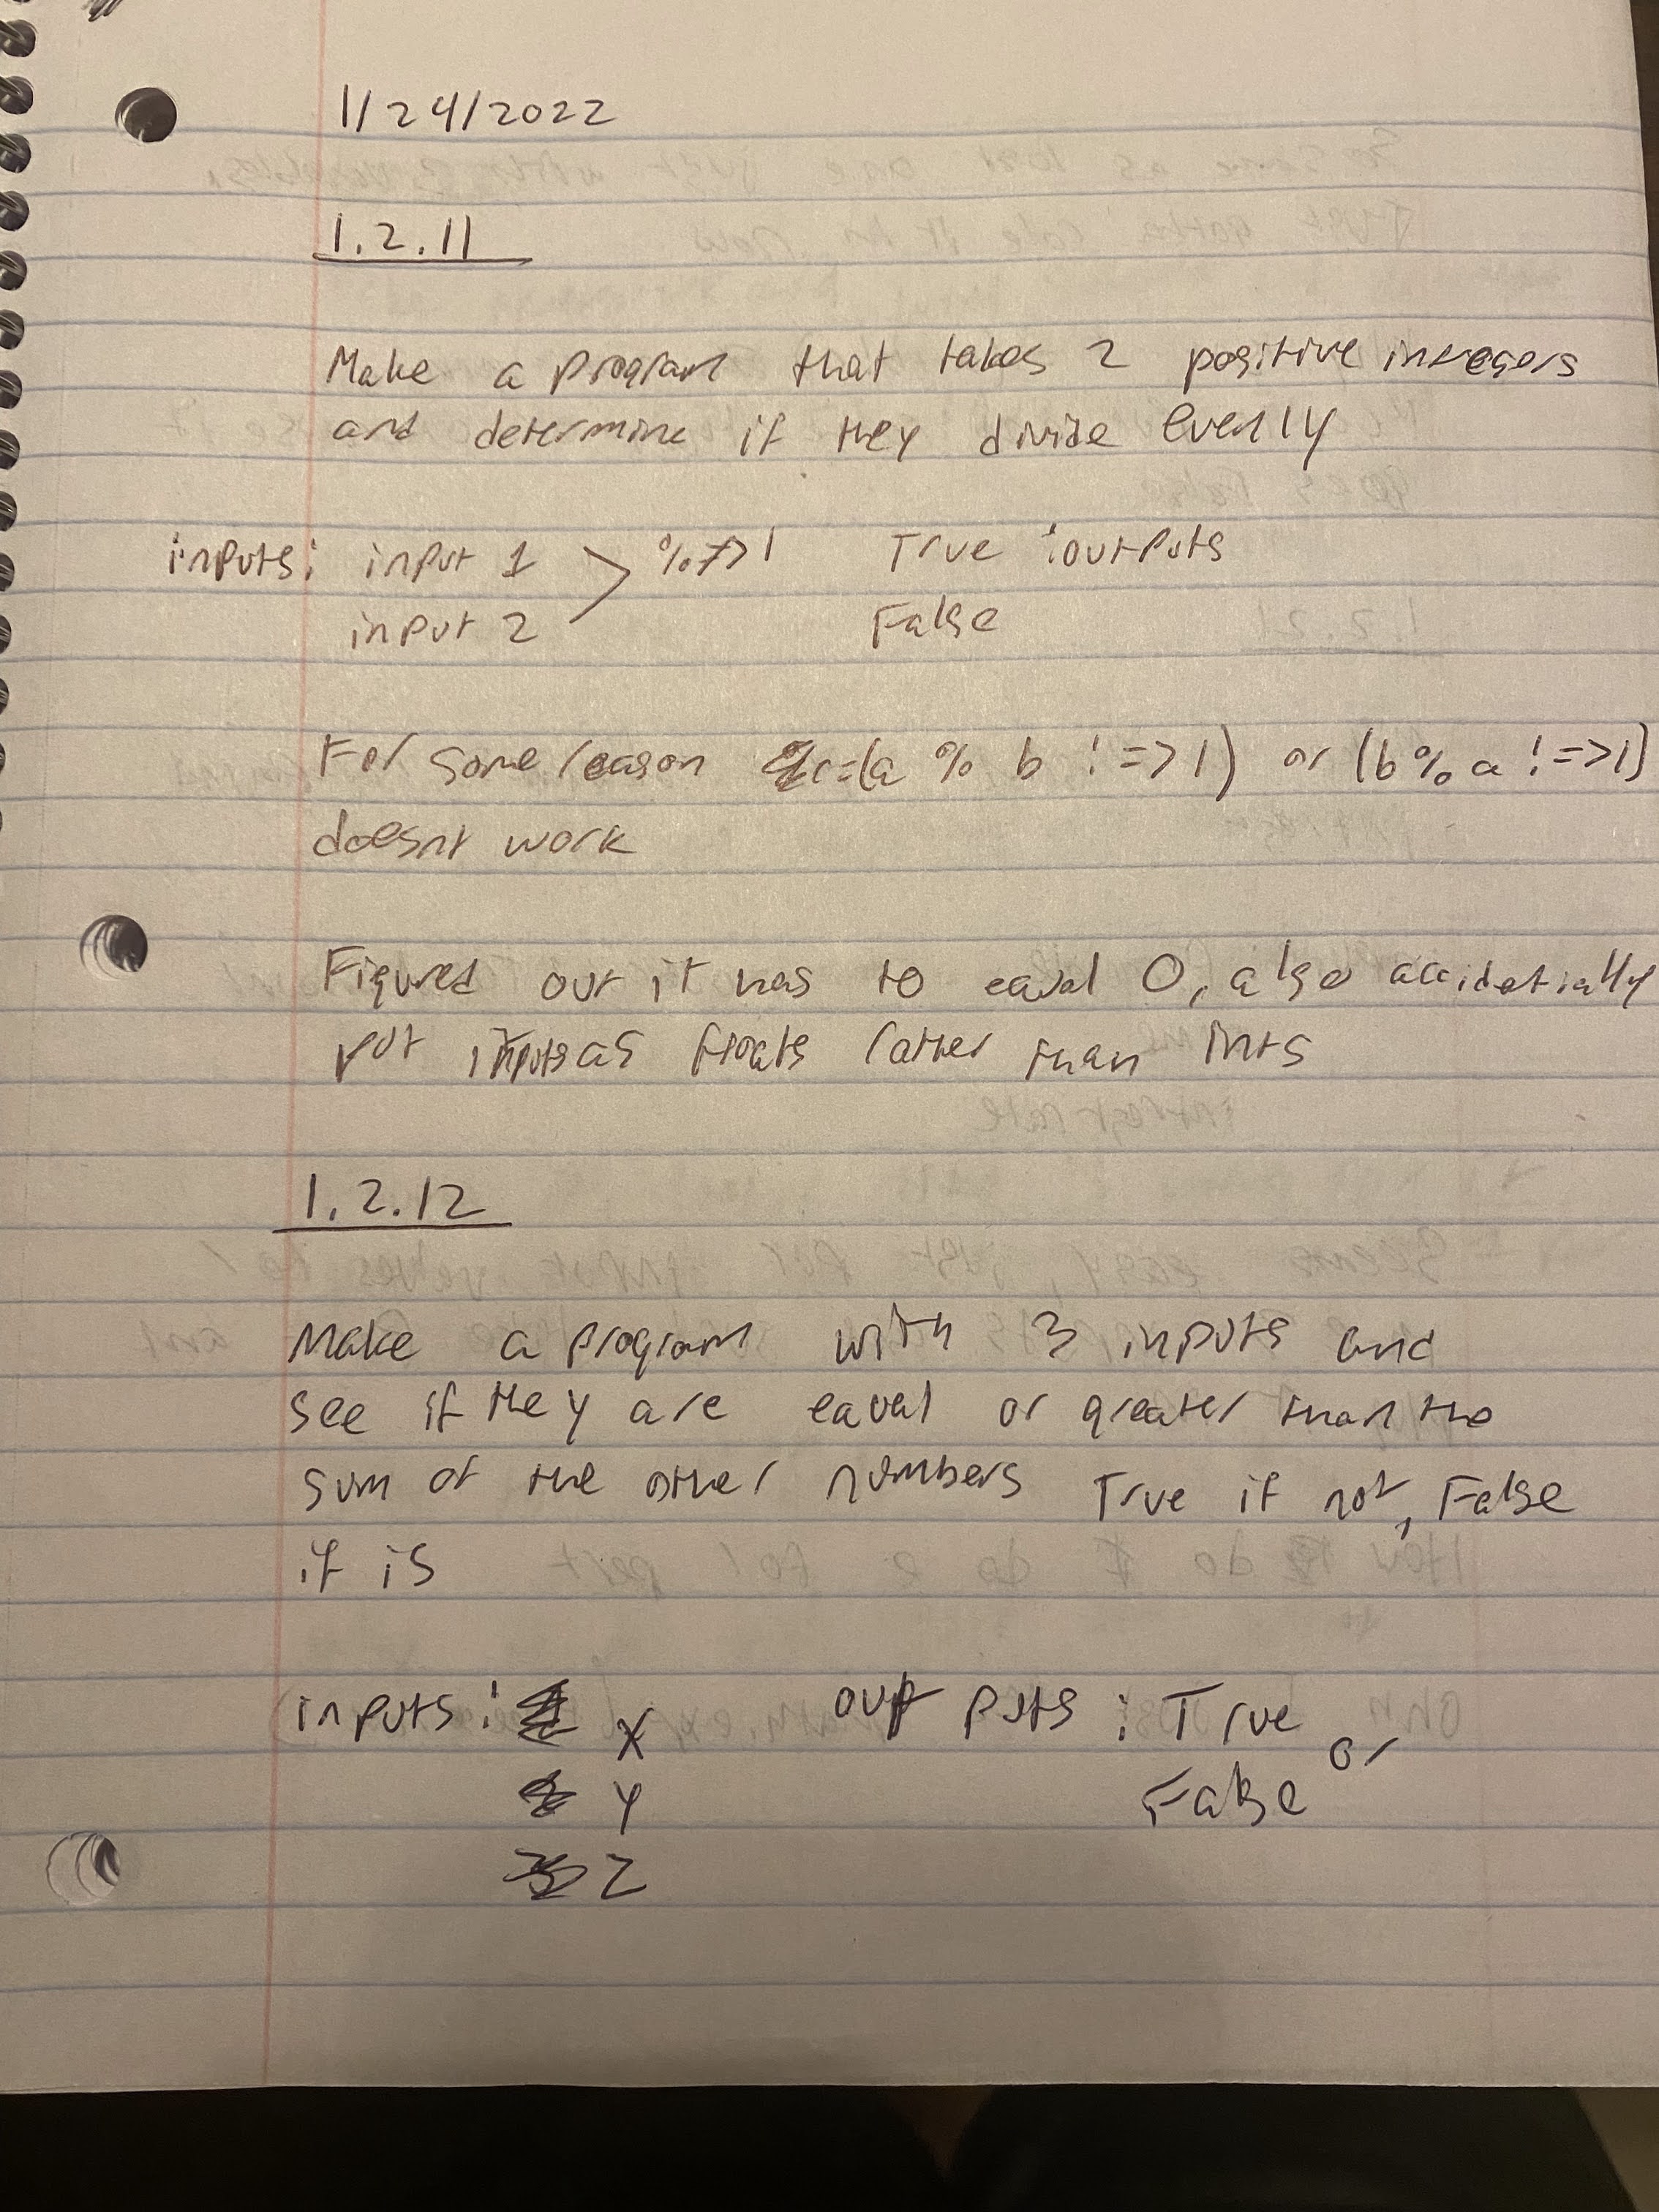 1/24/2022
1.2.11
Make a program that takes 2 positive integers
and determine if they divide evenly
inputs: input 1 > % ≠> 1 True :outputs
input 2 False
For some reason c=(a % b !=>1) or (b % a !=>1)
doesnt work
Figured out it has to equal 0, also accidetially
put inputs as floats rather than ints
1.2.12
Make a program with 3 inputs and
see if they are equal or greater than the
sum of the other numbers True if not, False
if is
inputs: X out puts : True or
Y False
Z